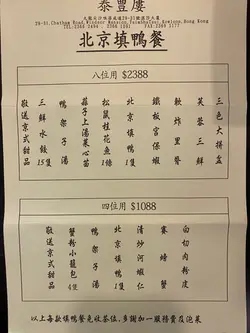 泰豐廔
九龍尖沙咀漆咸道29-31號溫莎大廈
29-31,Chatham Road,Windsor Mansion,Tsimshatsui,Kowloon,Hong Kong
北京填鴨餐
八位用 $2388
三色大拼盆
芙蓉三鮮
軟炸里脊
鐵板宮保蝦
北京填鴨1隻
松鼠桂花魚1條
蒜子上湯菜心苗
鴨架子湯
三鮮水餃15隻
敬送京式甜品
四位用 $1088
白切肉粉皮
賽螃蟹
清炒河蝦仁
北京填鴨1隻
鴨架子湯
蟹粉小籠包4隻
敬送京式甜品
以上每款填鴨餐免收茶位,多謝加一服務費及泡菜